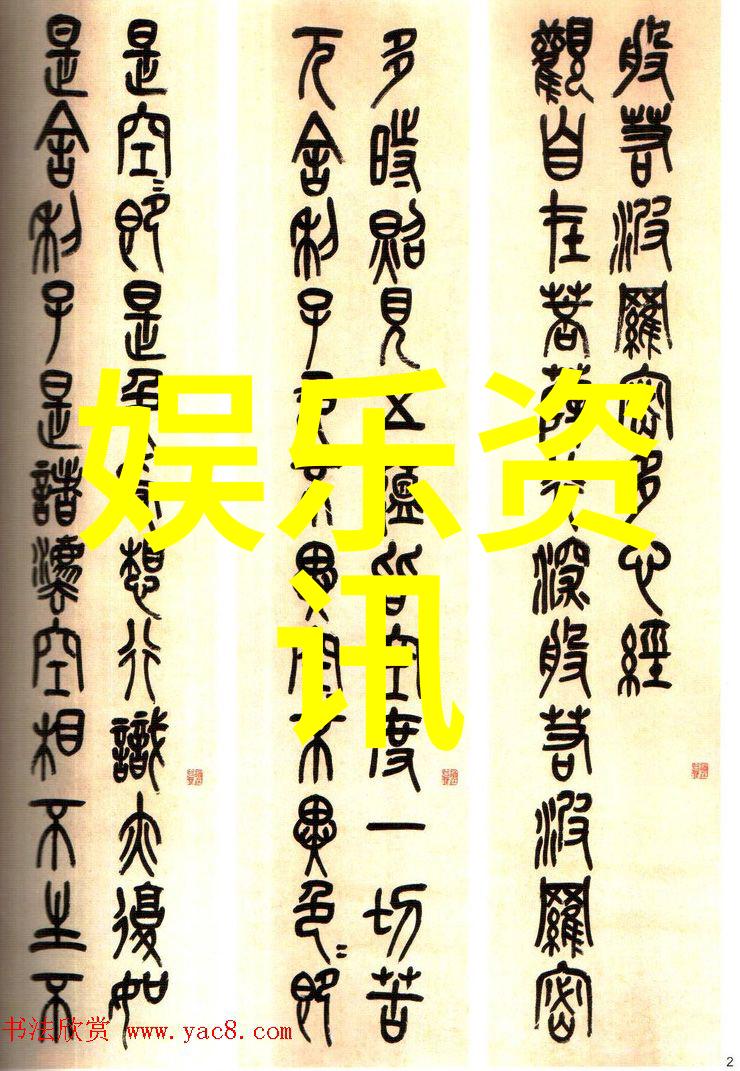 般若波羅密多心經
觀自在菩薩行深般若波羅密
多時照見五蘊皆空度一切苦
厄舍利子色不異空不異色〻即
是空〻即是色受想行識亦復如
是舍利子是諸法空相不生不
娱乐资
讯
书法欣赏 www.yac8.com
2